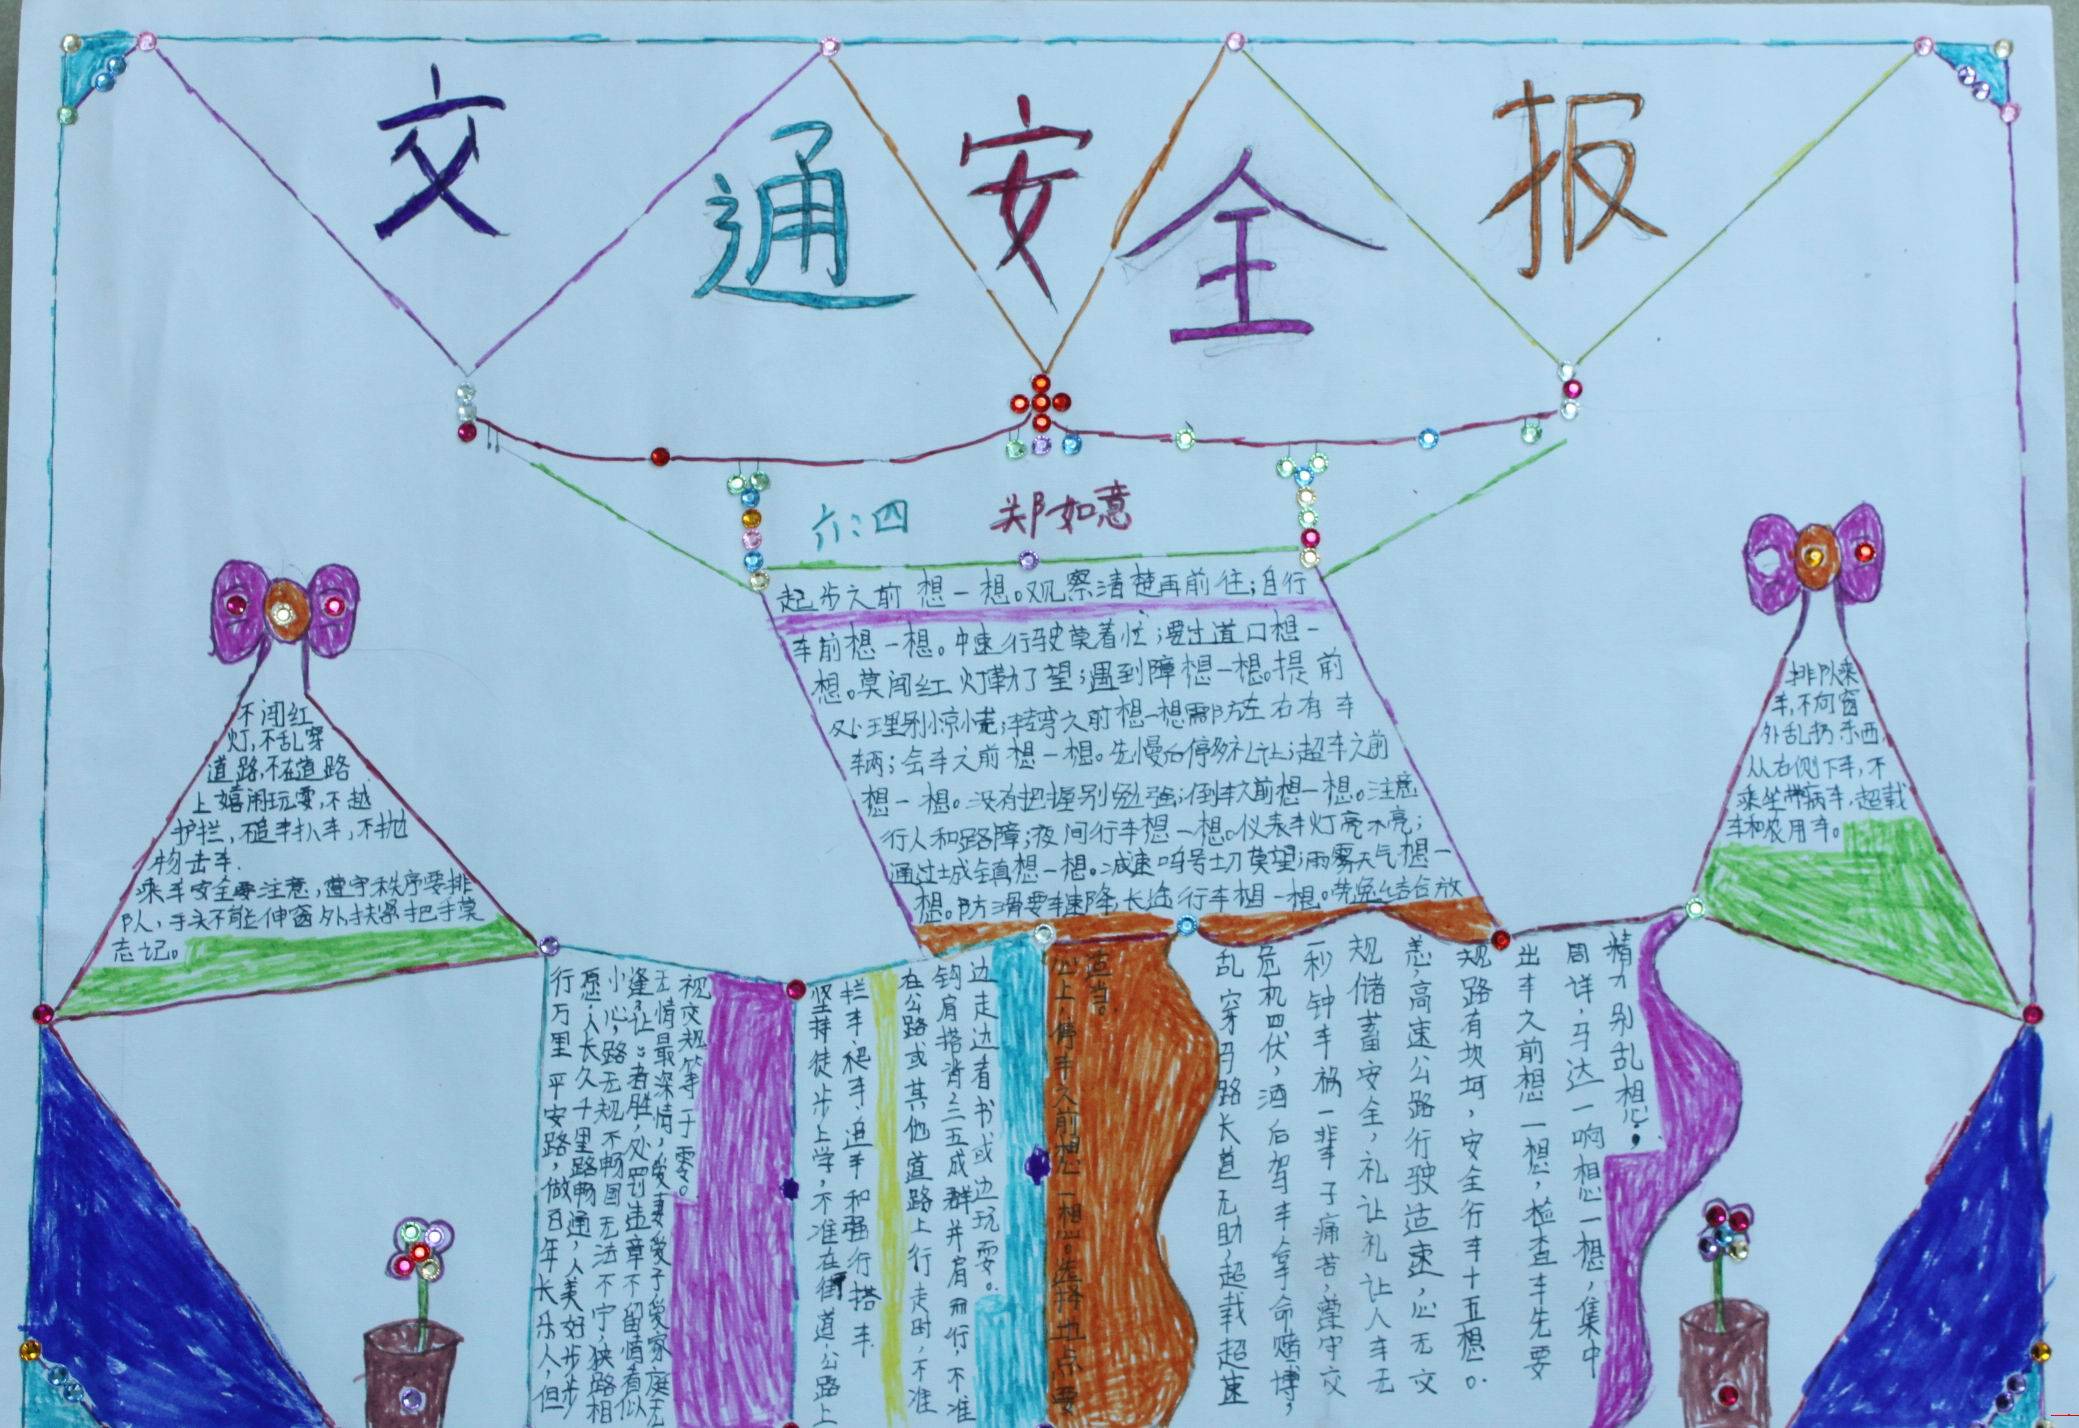 交通安全报
六：四 郑如意
起步之前想一想。观察清楚再前往；自行
车前想一想。中速行驶莫着忙；要出道口想一
想。莫闯红灯勤了望；遇到障想一想。提前
处理别惊慌；转弯之前想一想需防左右有车
辆；会车之前想一想。先慢后停多礼让；超车之前
想一想。没有把握别勉强；倒车之前想一想。注意
行人和路障；夜间行车想一想。仪表车灯亮不亮；
通过城镇想一想。减速鸣号切莫望；雨雾天气想一
想。防滑要车速降；长途行车想一想。劳逸结合放
不闯红
灯，不乱穿
道路，不在道路
上嬉闹玩耍，不越
护栏，不追车扒车，不抛
物击车.
乘车安全要注意，遵守秩序要排
队，手头不能伸窗外，扶紧把手莫
忘记。
排队乘
车，不向窗
外乱扔东西，
从右侧下车，不
乘坐带病车，超载
车和农用车。
精力别乱想；
周详，马达一响想一想，集中
出车之前想一想，检查车先要
规路有坎坷，安全行车十五想。
恙，高速公路行驶适速，心无交
规储蓄安全，礼让礼让人车无
一秒钟车祸一辈子痛苦，尊守交
危机四伏，酒后驾车，拿命赌博，
乱穿马路长道无助，超载超速
适当。
心上，停车之前想一想。选择地点要
边走边看书或边玩耍。
钩肩搭背三五成群并肩而行，不准
在公路或其他道路上行走时，不准
拦车、爬车、追车和强行搭车
坚持徒步上学，不准在街道、公路上
视交规等于零。
无情最深情，爱妻爱子爱家庭无
逢了让者胜，处罚违章不留情有似
小心；路无规不畅国无法不宁，狭路相
愿，人长久千里路畅通，人美好步步
行万里平安路，做百年长乐人，但